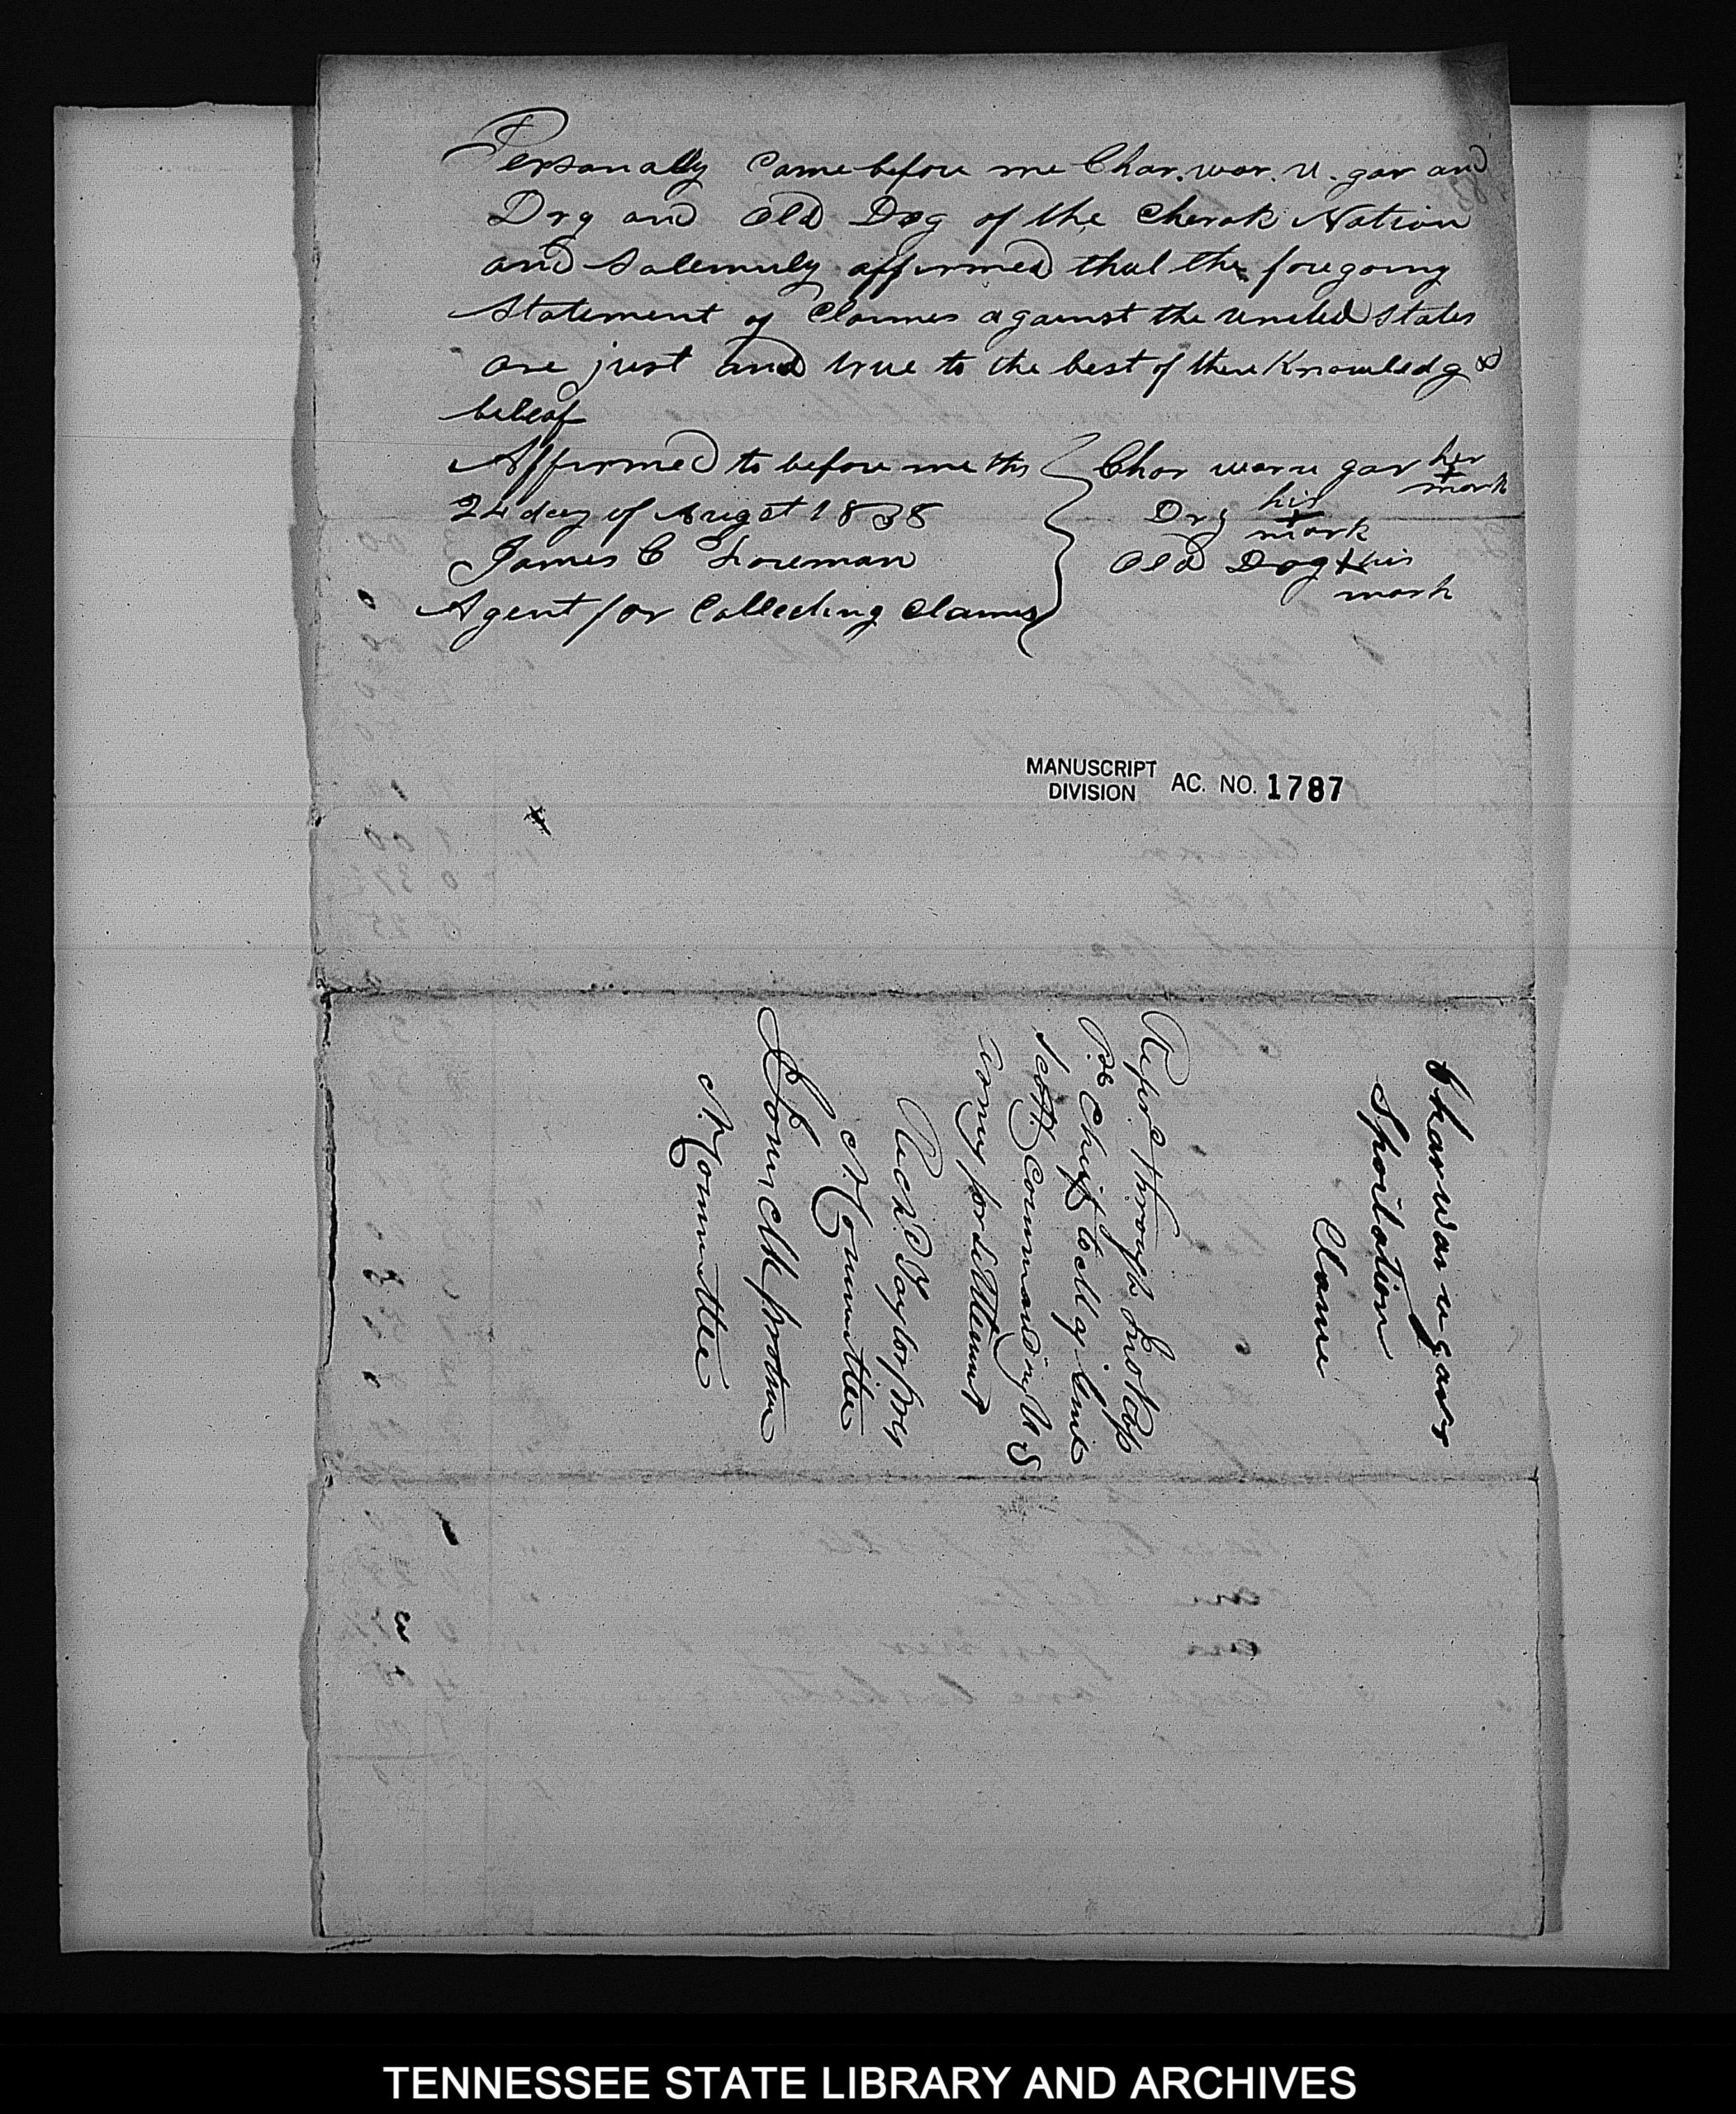 Personally Came before me Char. war. u. gar and
Dry and Old Dog of the Cherok Nation
and Solemnly affirmed that the foregoing
Statement of Claimes against the United States
are just and true to the best of there Knowledg &
beleaf
Affirmed to before me this
24 day of Augst 1838
James C Foreman
Agent for Collecting Claims
Char war u gar her
mark
Dry his
mark
Old Dog his
mark
MANUSCRIPT
DIVISION AC. NO. 1787
Char war u gar
Spoilation
Claime
Refer.d through Jno Ross
Pr Chief to Maj Genl
Scott Commanding U S
army for settlement
Rich.d Taylor Pres
N Committee
protem
N. Committee
TENNESSEE STATE LIBRARY AND ARCHIVES